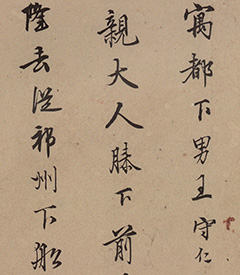 寓都下男王守仁
親大人膝下前
隆去從祁州下船